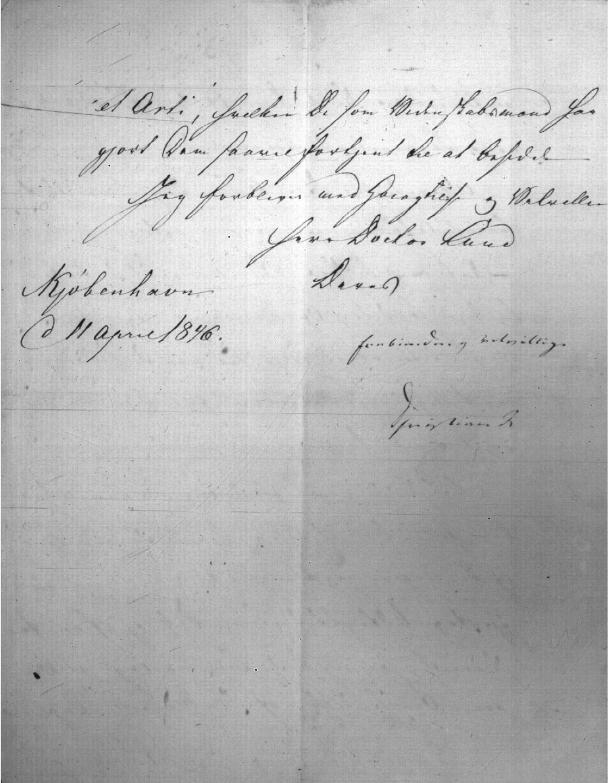 et Arti, hvilken De som Videnskabsmand har
gjort Dem saavel fortjent til at besidde
Jeg forbliver med Høiagtelse og Velvillie
Herr Doctor Lund
Deres
Kjöbenhavn
d 11 April 1846.
forbindtlig velvillige
Christian R